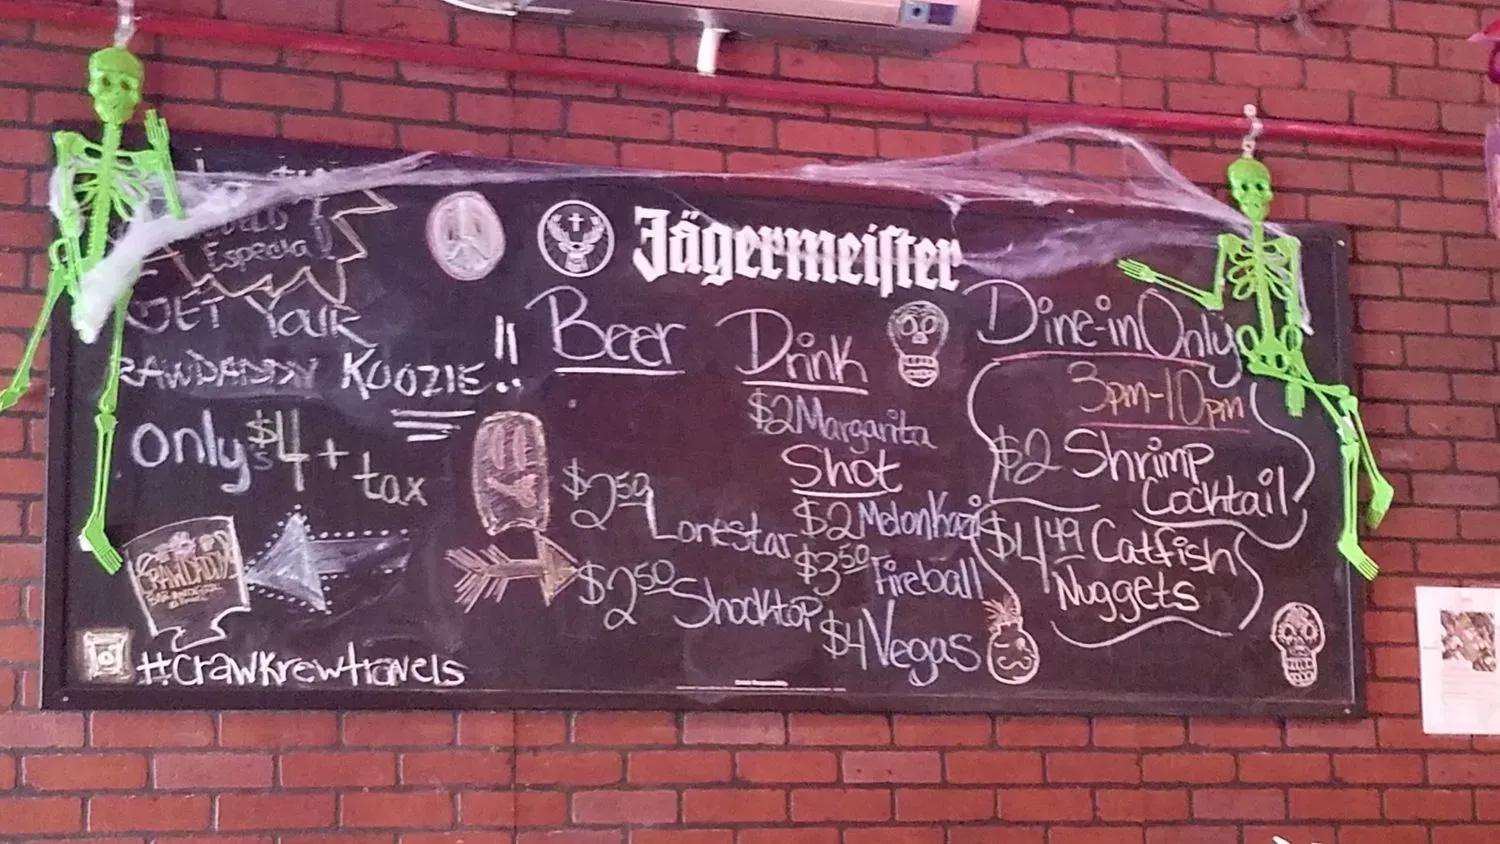 Especial
GET YOUR
RAWDADDY KOOZIE!!
only $4 + tax
CRAWDADDYS
#crawkrewtravels
Jägermeister
Beer
$2.50 Lonestar
$2.50 Shocktop
Drink
$2 Margarita
Shot
$2 Melonkazi
$3.50 Fireball
$4 Vegas
Dine-in Only
3pm-10pm
$2 Shrimp
Cocktail
$4.49 Catfish
Nuggets